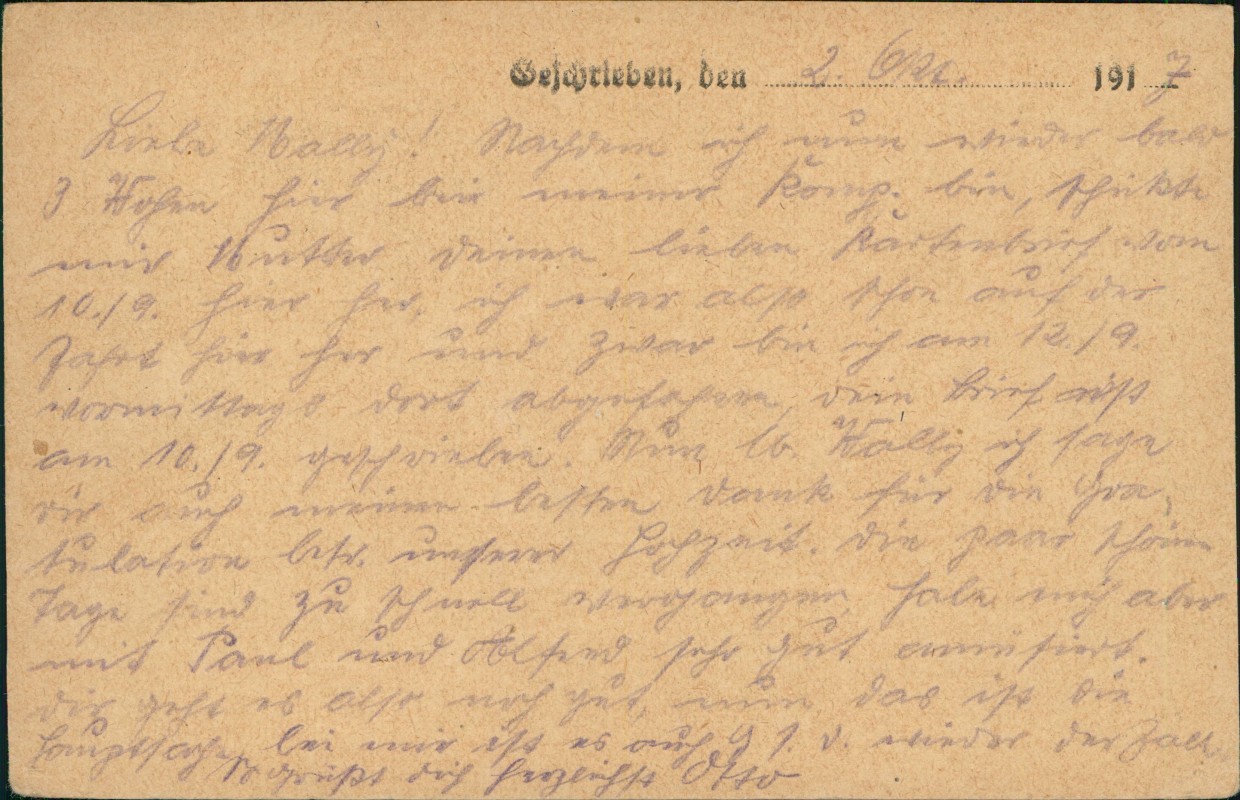 Geschrieben, den 2. Okt. 1917
Liebe Wally! Nachdem ich nun wieder bald
3 Wochen hier bei meiner Komp. bin, schickte
mir Mutter deinen lieben Kartenbrief vom
10./9. hier her, ich war also schon auf der
Fahrt hier her und zwar bin ich am 12./9.
vormittags dort abgefahren, dein Brief ist
am 10./9. geschrieben. Nun lb. Wally ich sage
dir auch meinen besten Dank für die Gra-
tulation betr. unserer Hochzeit. Die paar schönen
Tage sind zu schnell vergangen, habe mich aber
mit Paul und Alfred sehr gut amüsiert.
Dir geht es also noch gut, nun das ist die
Hauptsache, bei mir ist es auch G. s. d. wieder der Fall.
Es grüßt dich herzlichst Otto